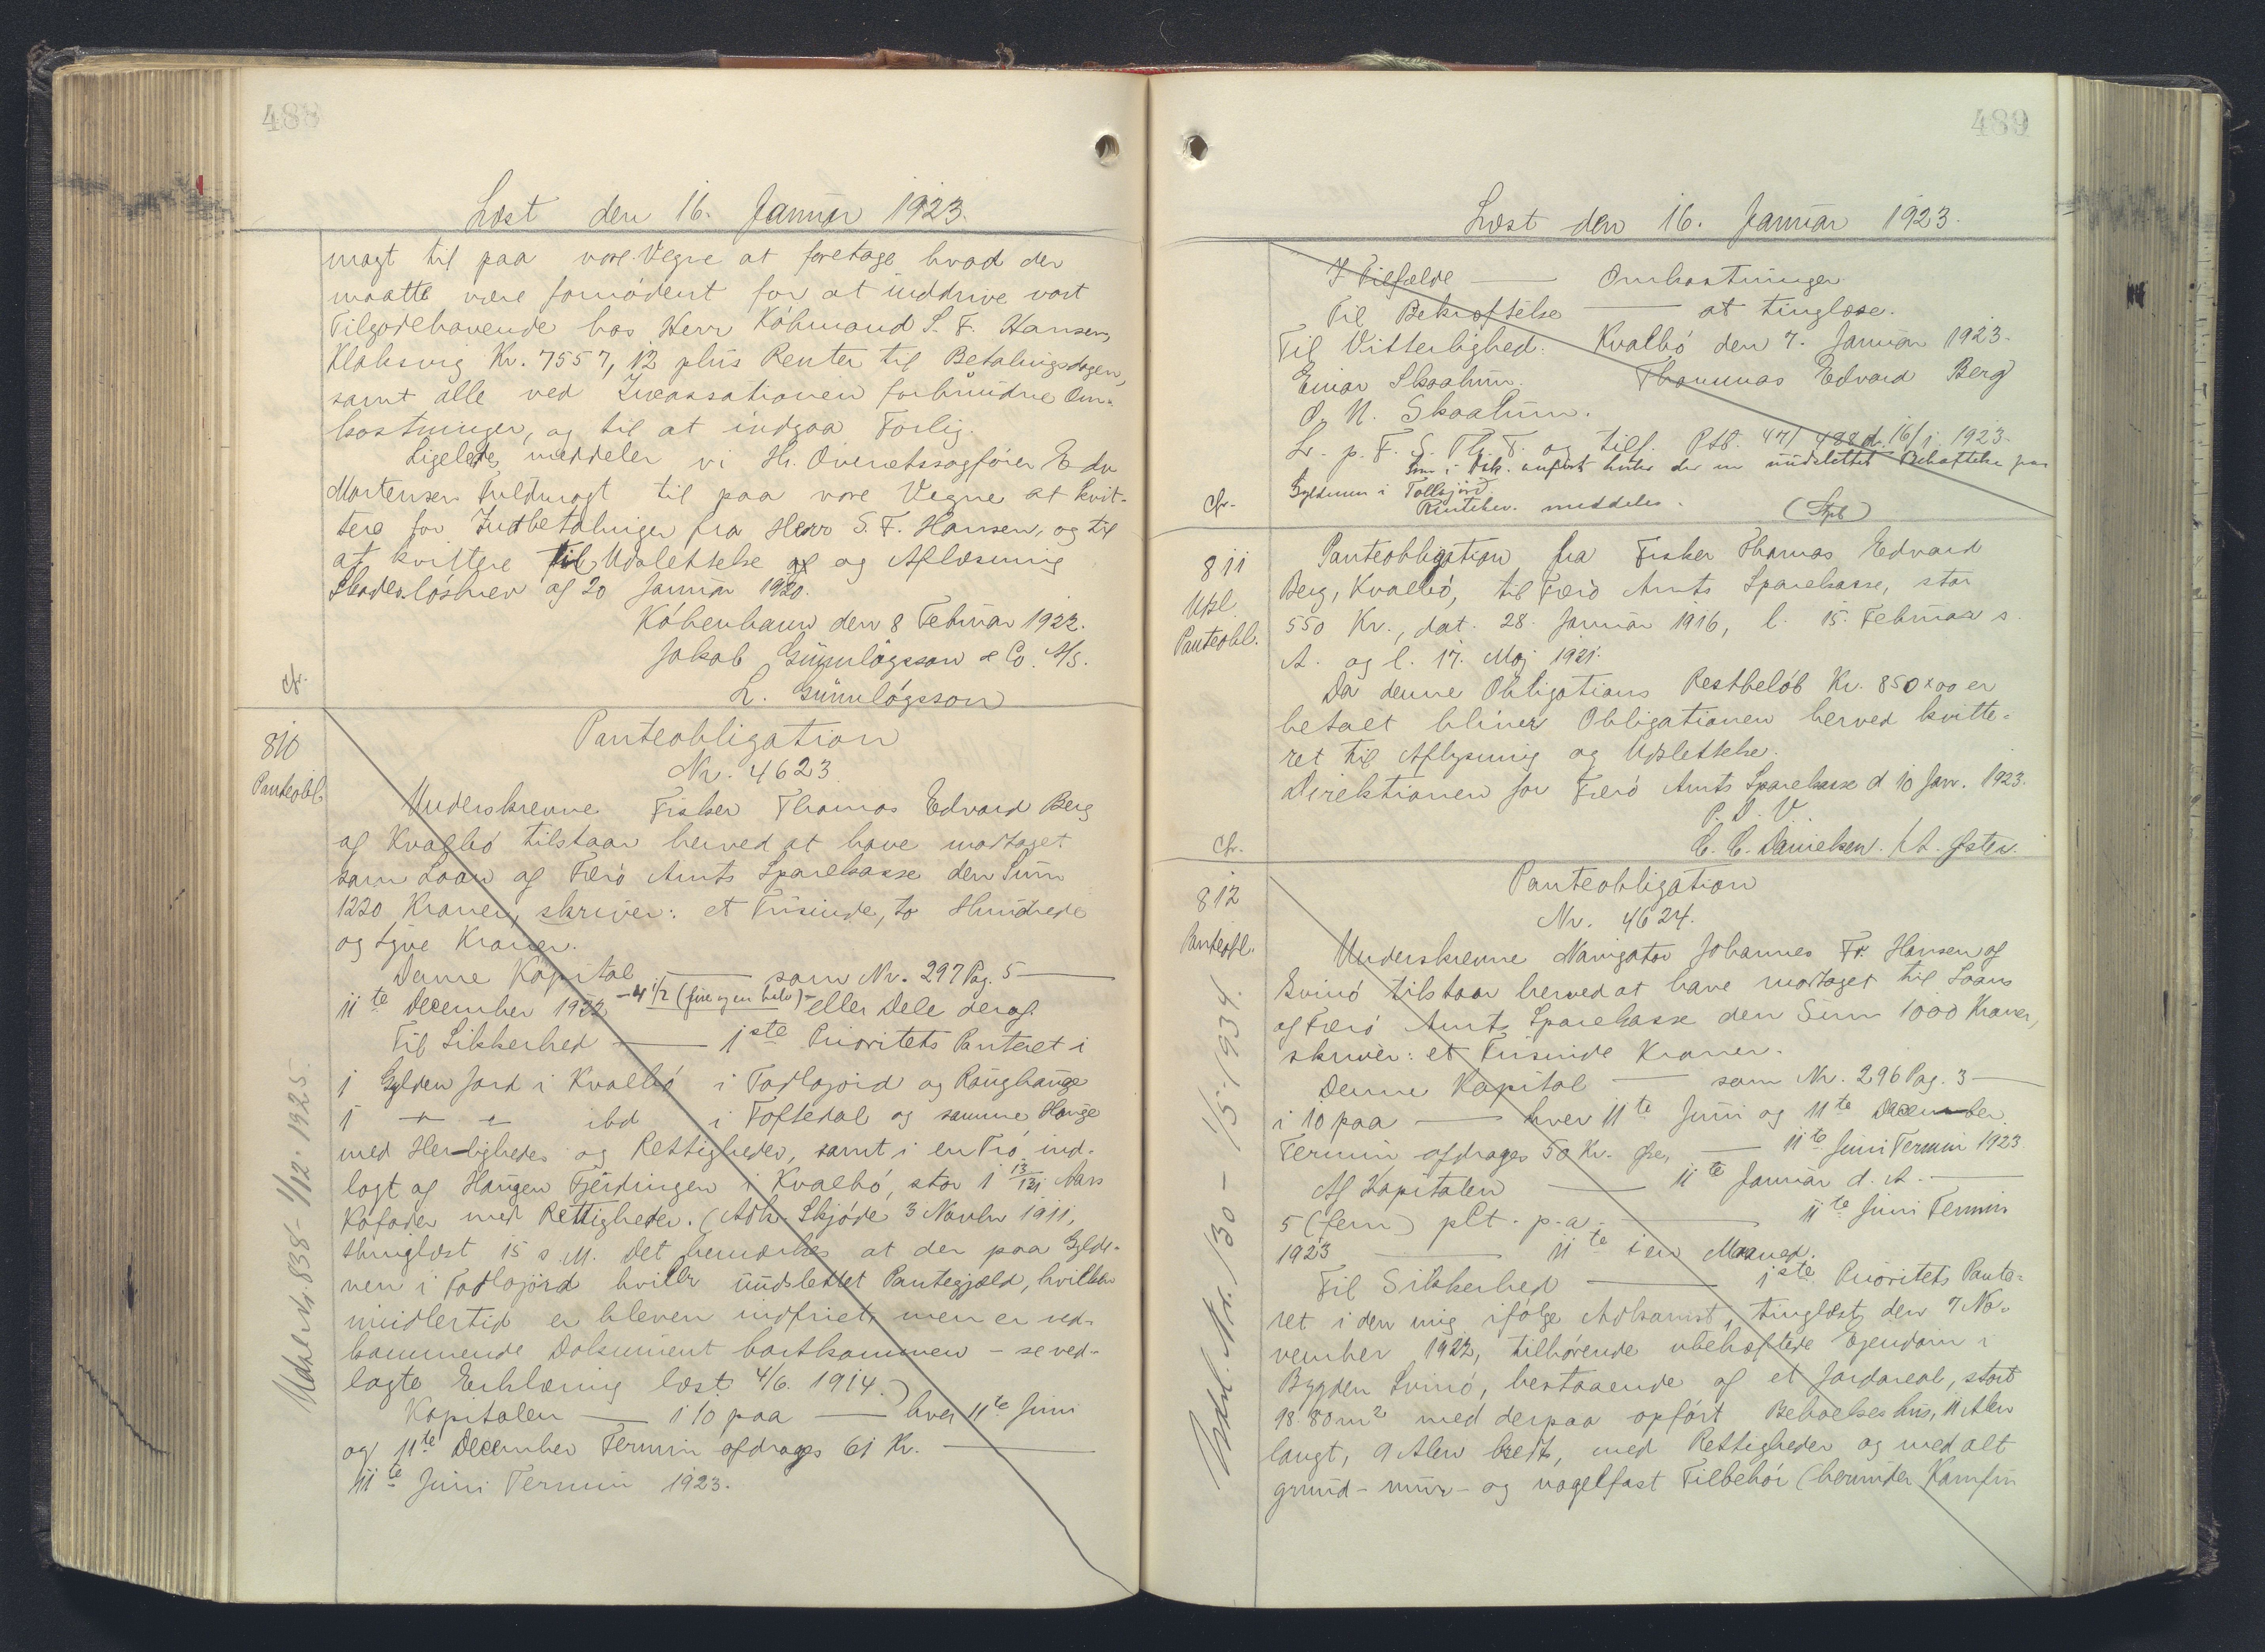 488
Læst den 16. Januar 1923.
magt til paa vore Vegne at foretage hvad der
maatte være fornødent for at inddrive vort
Tilgodehavende hos Herr Købmand S. F. Hansen,
Klaksvig Kr. 7557,12 plus Renter til Betalingsdagen,
samt alle ved Incassationen forbundne Om-
kostninger, og til at indgaa Forlig.
Ligeledes meddeler vi Hr. Overretssagfører Edv
Mortensen Fuldmagt til paa vore Vegne at kvit-
tere for Indbetalinger fra Herr S. F. Hansen, og til
at kvittere til Udslettelse og Aflæsning
Skadesløsbrev af 20 Januar 1920.
København den 8 Februar 1922.
Jakob Gunnløgsson & Co. A/S.
L. Gunnløgsson
cfr.
810
Panteobl.
Panteobligation
Nr. 4623.
Underskrevne Fisker Thomas Edvard Berg
af Kvalbø tilstaar herved at have modtaget
som Laan af Færø Amts Sparekasse den Sum
1220 Kroner, skriver: et Tusinde, to Hundrede
og tyve Kroner.
Denne Kapital — som Nr. 297 Pag. 5 —
11te December 1922 – 4 1/2 (fire og en halv) – eller Dele deraf.
Til Sikkerhed — 1ste Prioritets Panteret i
1 Gylden Jord i Kvalbø i Todlajørd og Houghauge
1 " " ibd i Toftedal og samme Hauge
med Herligheder og Rettigheder, samt i en Trø ind-
lagt af Haugen Fjerdingen i Kvalbø, stor 1 13/121 Aars
Kofoder med Rettigheder. (Adk. Skjøde 3 Novbr 1911,
thinglæst 15 s. M. Det bemærkes at der paa Gylde-
nen i Todlajørd hviler uudslettet Pantegjæld, hvilken
imidlertid er bleven indfriet, men er ved-
kommende Dokument bortkommen – se ved-
lagte Erklæring læst 4/6. 1914.)
Kapitalen — i 10 paa — hver 11te Juni
og 11te December Termin afdrages 61 Kr. —
11te Juni Termin 1923.
Udsl. Nr. 838 – 1/12. 1925.
489
Læst den 16. Januar 1923.
I Tilfælde — Omkostninger.
Til Bekræftelse — at tinglæse.
Til Vitterlighed. Kvalbø den 7. Januar 1923.
Einar Skaalum. Thommas Edvard Berg
O. N. Skaalum.
Lr. p. F. S. Th. T. og tilf. Ptb. 47/488 d. 16/1. 1923.
Som i Dok. anført hviler der en uudslettet Behæftelse paa
Gyldenen i Todlajørd.
Rentebev. meddeles. (Stpl)
cfr.
811
Udsl.
Panteobl.
Panteobligation fra Fisker Thomas Edvard
Berg, Kvalbø, til Færø Amts Sparekasse, stor
550 Kr., dat. 28. Januar 1916, l. 15. Februar s.
A. og l. 17. Maj 1921.
Da denne Obligations Restbeløb Kr. 850x00 er
betalt bliver Obligationen herved kvitte-
ret til Aflysning og Udslettelse.
Direktionen for Færø Amts Sparekasse d 10 Jan. 1923.
P. D. V.
C. C. Danielsen. / A. Østen.
cfr.
812
Panteobl.
Panteobligation
Nr. 4624.
Underskrevne Navigatør Johannes Fr. Hansen af
Svinø tilstaar herved at have modtaget til Laans
af Færø Amts Sparekasse den Sum 1000 Kroner,
skriver: et Tusinde Kroner.
Denne Kapital — som Nr. 296 Pag. 3 —
i 10 paa — hver 11te Juni og 11te December
Termin afdrages 50 Kr. Øre, — 11te Juni Termin 1923
Af Kapitalen — 11te Januar d. A. —
5 (fem) pCt. p. a. — 11te Juni Termin
1923 — 11te i en Maaned.
Til Sikkerhed — 1ste Prioritets Pante-
ret i den mig ifølge Adkomst, tinglæst den 7 No-
vember 1922, tilhørende ubehæftede Ejendom i
Bygden Svinø, bestaaende af et Jordareal, stort
18.80 m² med derpaa opført Beboelseshus, 11 Alen
langt, 9 Alen bredt, med Rettigheder og med alt
grund- mur- og nagelfast Tilbehør (herunder Komfur
Udsl. Nr. 130 – 1/5. 1934.